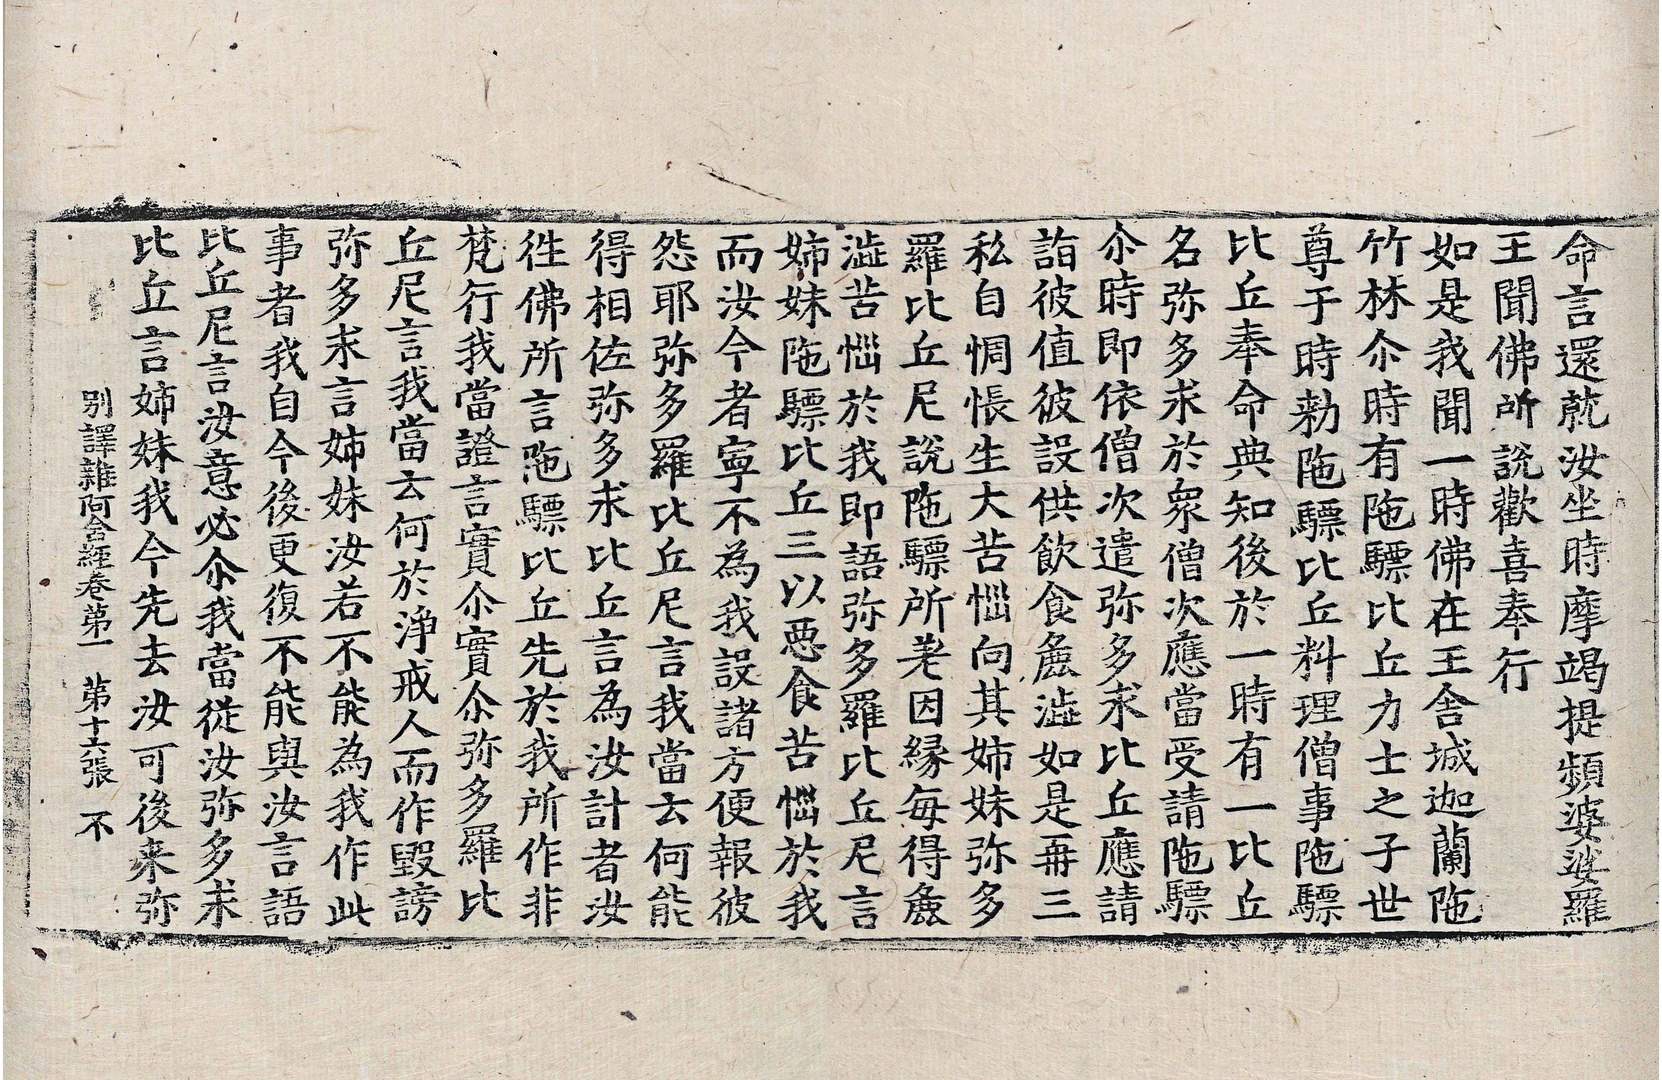 命言還就汝坐時摩竭提頻婆娑羅
王聞佛所說歡喜奉行
如是我聞一時佛在王舍城迦蘭陁
竹林尒時有陁驃比丘力士之子世
尊于時勑陁驃比丘料理僧事陁驃
比丘奉命典知後於一時有一比丘
名弥多求於衆僧次應當受請陁驃
尒時即依僧次遣弥多求比丘應請
詣彼值彼設供飲食麁澁如是再三
私自惆悵生大苦惱向其姊妹弥多
羅比丘尼說陁驃所差因緣每得麁
澁苦惱於我即語弥多羅比丘尼言
姊妹陁驃比丘三以惡食苦惱於我
而汝今者寧不為我設諸方便報彼
怨耶弥多羅比丘尼言我當云何能
得相佐弥多求比丘言為汝計者汝
徃佛所言陁驃比丘先於我所作非
梵行我當證言實尒實尒弥多羅比
丘尼言我當云何於淨戒人而作毀謗
弥多求言姊妹汝若不能為我作此
事者我自今後更復不能與汝言語
比丘尼言汝意必尒我當從汝弥多求
比丘言姊妹我今先去汝可後来弥
別譯雜阿含經卷第一　第十六張　不